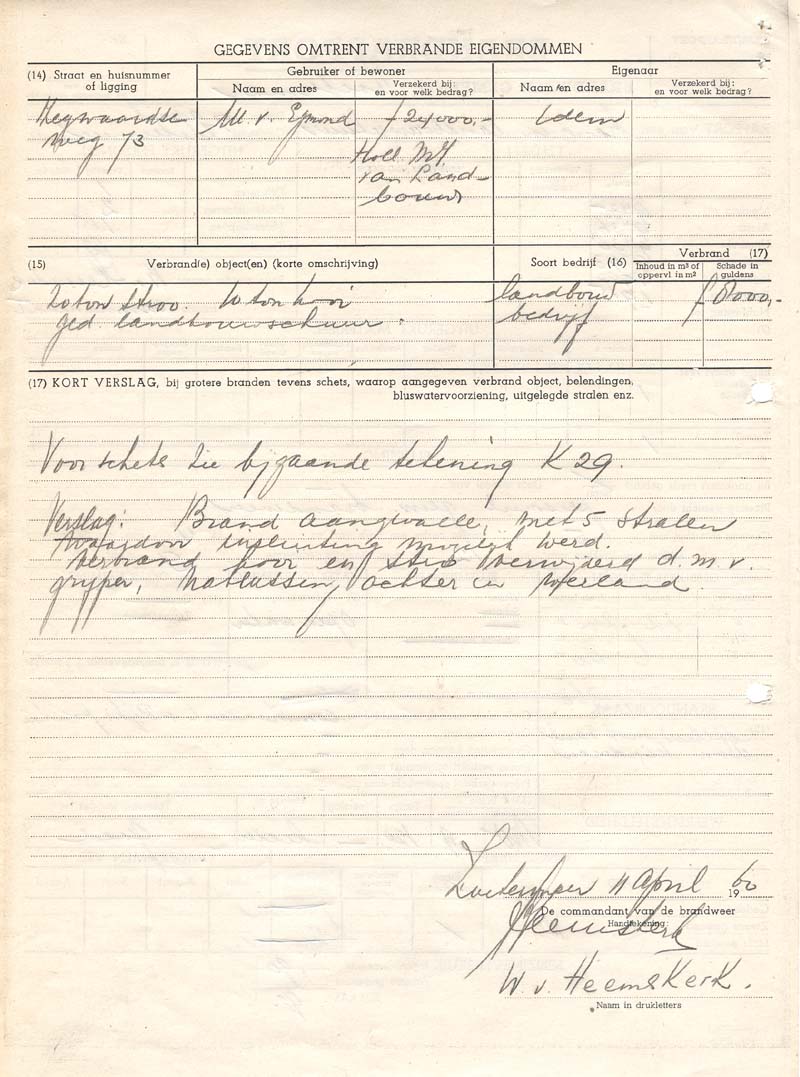 GEGEVENS OMTRENT VERBRANDE EIGENDOMMEN
(14) Straat en huisnummer of ligging
Gebruiker of bewoner
Eigenaar
Naam en adres
Verzekerd bij: en voor welk bedrag?
Naam en adres
Verzekerd bij: en voor welk bedrag?
weg 73
M. v. Egmond
f 24000,-
Idem
Holl. Mij.
van Land-
bouw
(15) Verbrand(e) object(en) (korte omschrijving)
Soort bedrijf (16)
Verbrand (17)
Inhoud in m³ of oppervl. in m²
Schade in guldens
20 ton stroo. 10 ton hooi
ged. landbouwschuur.
landbouw
bedrijf
f 8000,-
(17) KORT VERSLAG, bij grotere branden tevens schets, waarop aangegeven verbrand object, belendingen,
bluswatervoorziening, uitgelegde stralen enz.
Voor schets zie bijgaande tekening K 29.
Verslag: Brand aangevallen, met 5 stralen
waardoor insluiting mogelijk werd.
Verbrand hooi en stro verwijderd d.m.v.
grijper, nablussen, achter in weiland.
Zoetermeer 11 April 1960
De commandant van de brandweer
Handtekening:
Heemskerk
W. v. Heemskerk.
Naam in drukletters